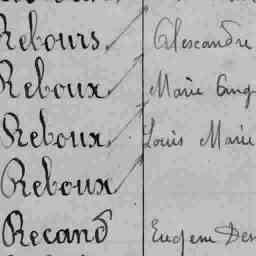 Rebours Alexandre
Reboux Marie
Reboux Louis Marie
Reboux
Recand Eugene